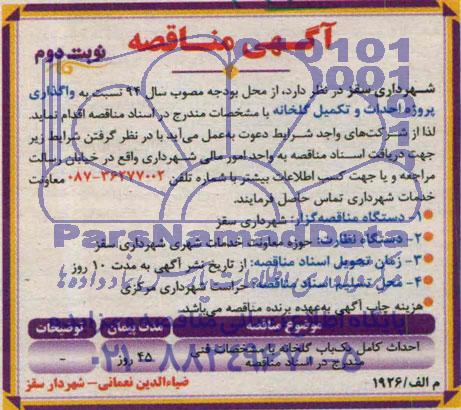 آگهی مناقصه
نوبت دوم
شهرداری سقز در نظر دارد، از محل بودجه مصوب سال ۹۴ نسبت به واگذاری
پروژه احداث و تکمیل گلخانه با مشخصات مندرج در اسناد مناقصه اقدام نماید.
لذا از شرکت‌های واجد شرایط دعوت به‌عمل می‌آید با در نظر گرفتن شرایط زیر
جهت دریافت اسناد مناقصه به واحد امور مالی شهرداری واقع در خیابان رسالت
مراجعه و یا جهت کسب اطلاعات بیشتر با شماره تلفن ۳۶۲۷۷۰۰۲-۰۸۷ معاونت
خدمات شهرداری تماس حاصل فرمایند.
۱- دستگاه مناقصه‌گزار: شهرداری سقز
۲- دستگاه نظارت: حوزه معاونت خدمات شهری شهرداری سقز
۳- زمان تحویل اسناد مناقصه: از تاریخ نشر آگهی به مدت ۱۰ روز
۴- محل تسلیم اسناد مناقصه: حراست شهرداری مرکزی
هزینه چاپ آگهی به‌عهده برنده مناقصه می‌باشد.
موضوع مناقصه مدت پیمان توضیحات
احداث کامل یک‌باب گلخانه با مشخصات فنی
مندرج در اسناد مناقصه ۴۵ روز -
م الف/۱۹۲۶ ضیاءالدین نعمانی- شهردار سقز
ParsNamadData